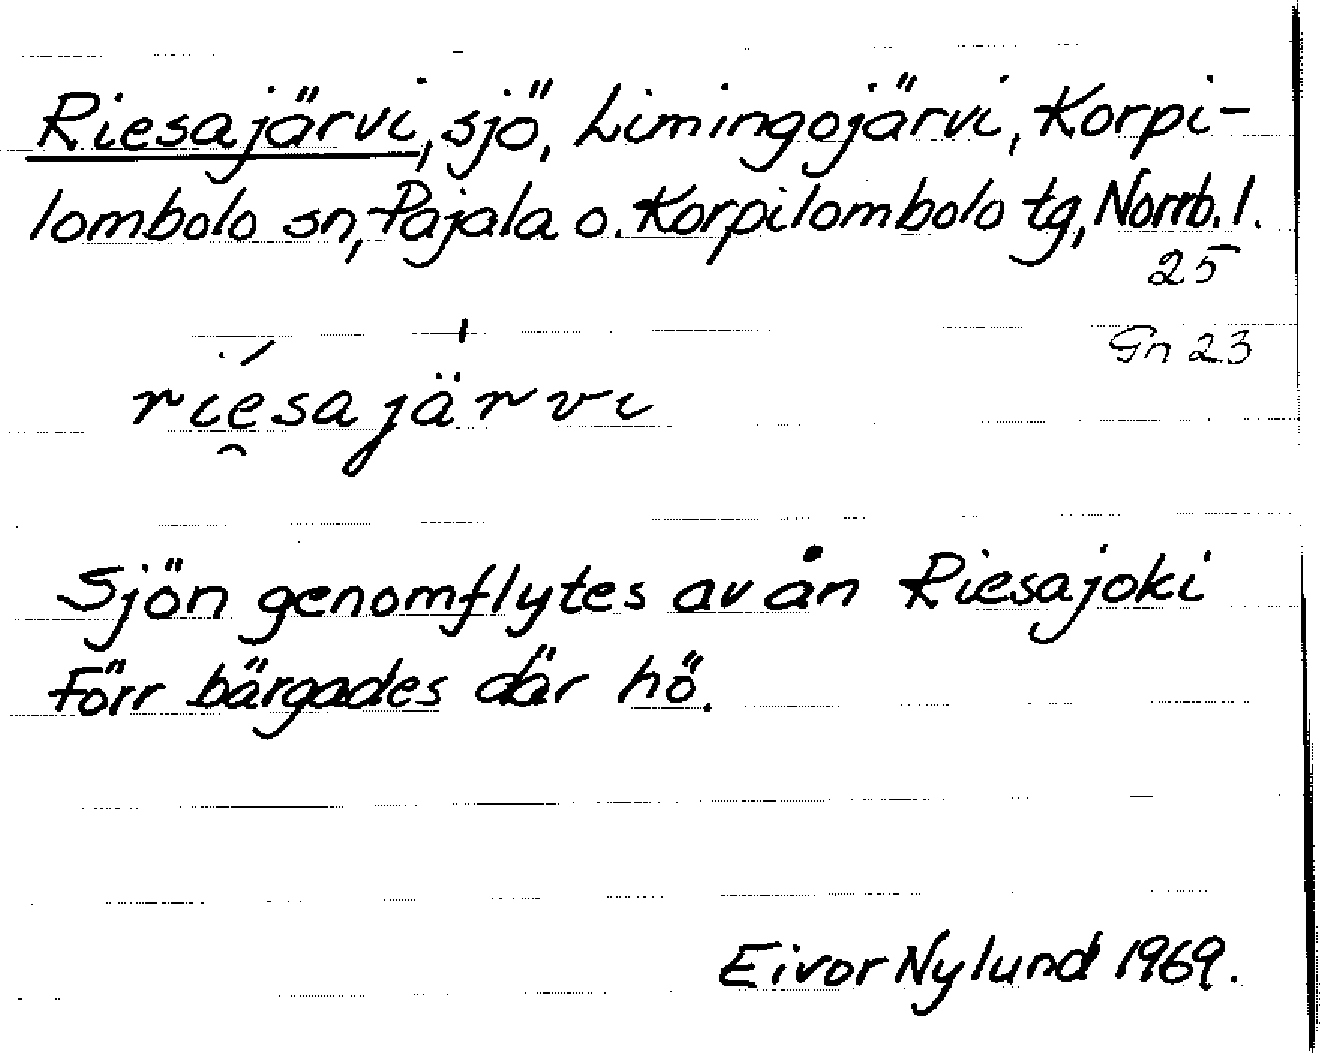 Riesajärvi, sjö, Limingojärvi, Korpi-
lombolo sn, Pajala o. Korpilombolo tg, Norrb. l.
25
Gn 23
ri̯ésajä̀rvi
Sjön genomflytes av ån Riesajoki
Förr bärgades där hö.
Eivor Nylund 1969.